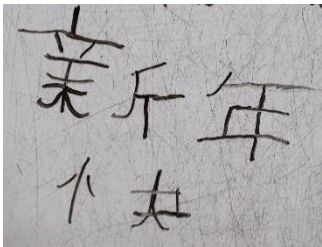 新年
快